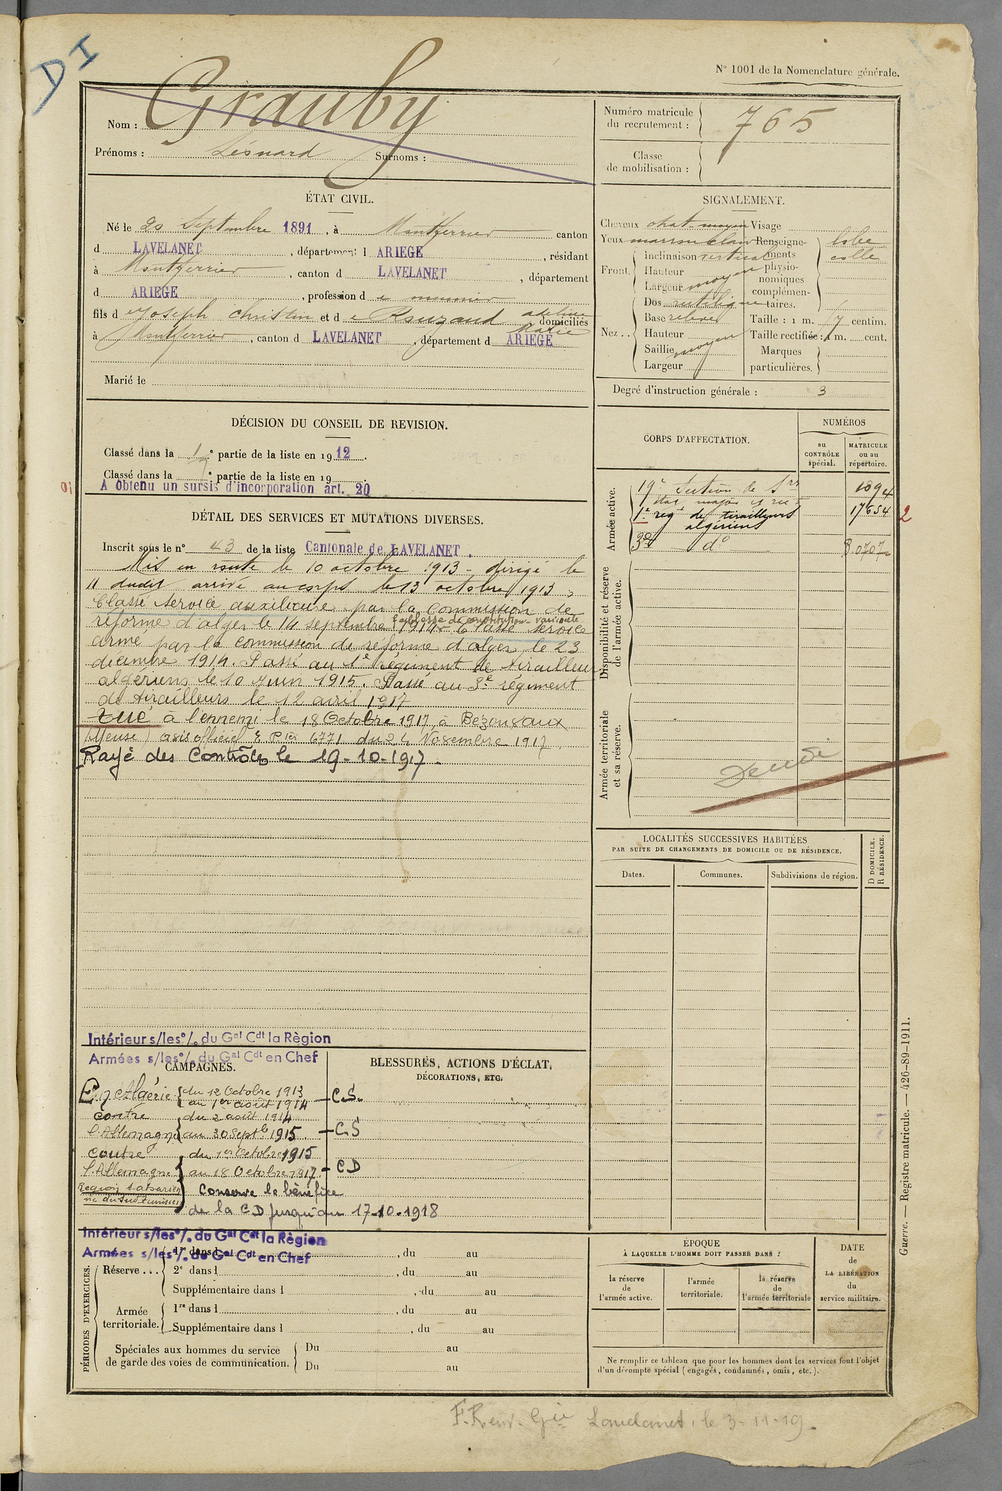 DI
N° 1001 de la Nomenclature générale.
Nom : Grauby
Prénoms : Léonard Surnoms :
Numéro matricule du recrutement : 765
Classe de mobilisation :
ÉTAT CIVIL.
Né le 20 Septembre 1891, à Montferrier canton
d LAVELANET, département d ARIEGE, résidant
à Montferrier, canton d LAVELANET, département
d ARIEGE, profession d e meunier
fils d e Joseph Christin et d e Rouzaud
domiciliés
à Montferrier, canton d LAVELANET, département d ARIEGE
Marié le
SIGNALEMENT.
Cheveux chat. moyen Visage
Yeux marron clair Renseigne-
ments
physio-
nomiques
complémen-
taires.
lobe
collé
Front.
inclinaison vertical
Hauteur moyen
Largeur
Nez
Dos rectiligne
Base relevé
Hauteur moyen
Saillie
Largeur
Taille : 1 m. 7 centim.
Taille rectifiée : 1 m. cent.
Marques
particulières.
Degré d'instruction générale : 3
DÉCISION DU CONSEIL DE REVISION.
Classé dans la 1e partie de la liste en 1912.
Classé dans la e partie de la liste en 19
A obtenu un sursis d'incorporation art. 20
DÉTAIL DES SERVICES ET MUTATIONS DIVERSES.
Inscrit sous le n° 43 de la liste Cantonale de LAVELANET.
Mis en route le 10 octobre 1913 - dirigé le
11 dudit arrivé au corps le 13 octobre 1913
Classé service auxiliaire par la Commission de
réforme d'alger le 14 septembre 1914. Classé service
armé par la commission de réforme d'alger le 23
décembre 1914. Passé au 1e régiment de tirailleurs
algériens le 10 Juin 1915. Passé au 3e régiment
de tirailleurs le 12 avril 1917
Tué à l'ennemi le 18 Octobre 1917 à Bezonvaux
(Meuse) avis officiel 6771 du 24 Novembre 1917.
Rayé des Contrôles le 19-10-1917.
CORPS D'AFFECTATION.
NUMÉROS
au CONTRÔLE spécial.
MATRICULE ou au répertoire.
Armée active.
19e Section de
1094
1e reg de tirailleurs
algériens
17654
2
3e do
Disponibilité et réserve
de l'armée active.
Armée territoriale
et sa réserve.
LOCALITÉS SUCCESSIVES HABITÉES
PAR SUITE DE CHANGEMENTS DE DOMICILE OU DE RÉSIDENCE.
Dates.
Communes.
Subdivisions de région.
D DOMICILE.
R RÉSIDENCE.
Intérieur s/les o/. du Gal Cdt la Règion
Armées s/les o/. du Gal Cdt en Chef
CAMPAGNES.
En Algérie du 12 Octobre 1913
au 1er août 1914 C.S.
contre du 2 août 1914
l'Allemagne au 30 Septb 1915 C.S
contre du 1er Octobre 1915
l'Allemagne au 18 Octobre 1917 - CD
Conserve le bénéfice
de la CD jusqu'au 17-10-1918
BLESSURES, ACTIONS D'ÉCLAT,
DÉCORATIONS, ETC.
Intérieur s/les o/. du Gal Cdt la Règion
Armées s/les o/. du Gal Cdt en Chef
PÉRIODES D'EXERCICES.
Réserve ...
1re dans l , du au
2e dans l , du au
Supplémentaire dans l , du au
Armée
territoriale.
1re dans l , du au
Supplémentaire dans l , du au
Spéciales aux hommes du service
de garde des voies de communication.
Du au
Du au
ÉPOQUE
À LAQUELLE L'HOMME DOIT PASSER DANS :
la réserve
de
l'armée active.
l'armée
territoriale.
la réserve
de
l'armée territoriale
DATE
de
LA LIBÉRATION
du
service militaire.
Ne remplir ce tableau que pour les hommes dont les services font l'objet
d'un décompte spécial (engagés, condamnés, omis, etc.).
Guerre. — Registre matricule. — 426-89-1911.
le 3-11-19.